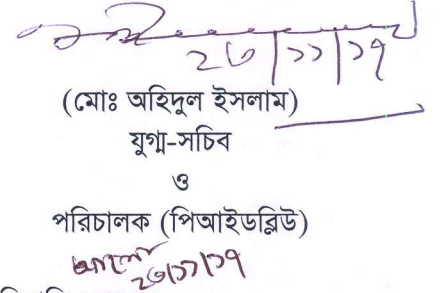 ২৬/১১/১৭
(মোঃ অহিদুল ইসলাম)
যুগ্ম-সচিব
ও
পরিচালক (পিআইডব্লিউ)
২৬/১১/১৭